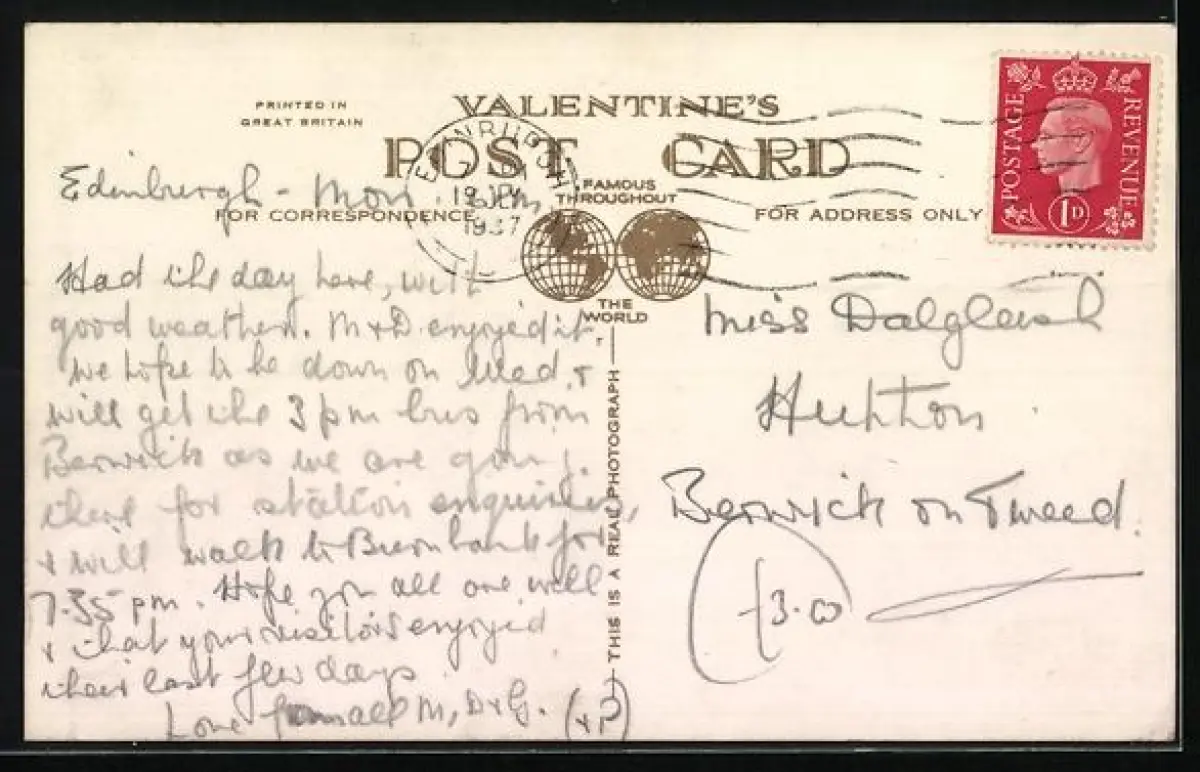 PRINTED IN
GREAT BRITAIN
VALENTINE'S
POST CARD
FOR CORRESPONDENCE
FAMOUS
THROUGHOUT
THE
WORLD
FOR ADDRESS ONLY
THIS IS A REAL PHOTOGRAPH
EDINBURGH
19
1937
POSTAGE
REVENUE
1D
Edinburgh - Mon.
Had the day here, with
good weather. M + D. enjoyed it.
We hope to be down on Wed, +
will get the 3 pm bus from
Berwick as we are going
there for station enquiries,
+ will walk to Burnbank for
7.35 pm. Hope you all are well
+ that your visitors enjoyed
their last few days.
Love from all M, D + G. (+ P)
Miss Dalgleish
Hutton
Berwick on Tweed.